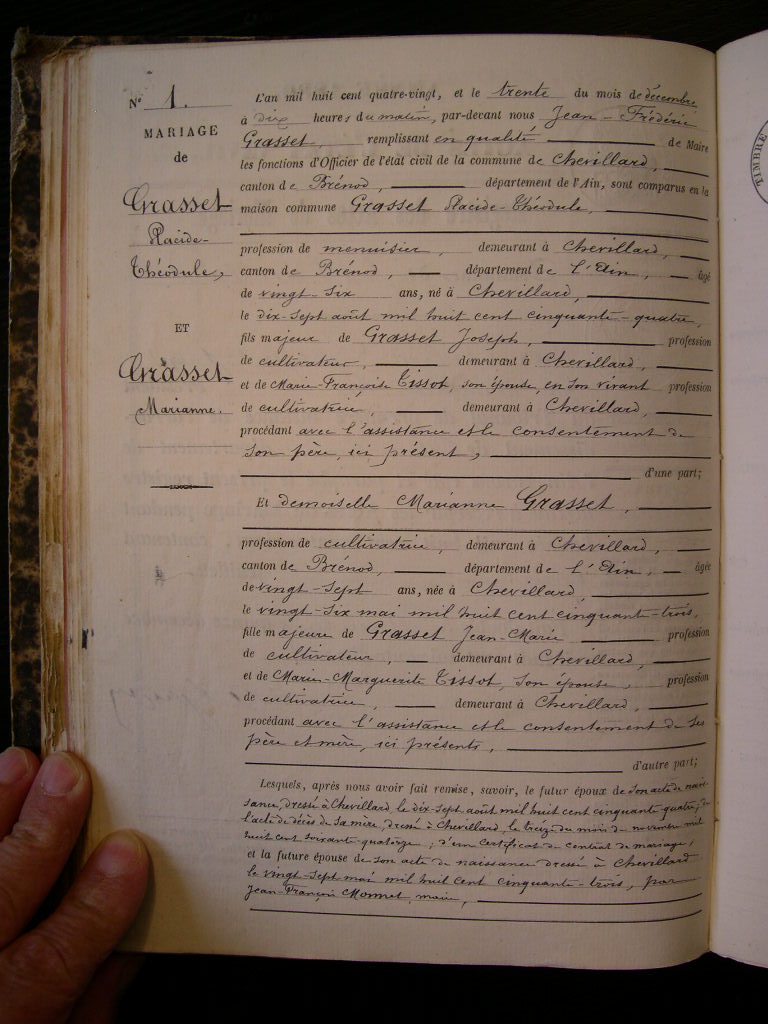 N° 1.
MARIAGE
de
Grasset
Placide-
Théodule,
ET
Grasset
Marianne.
L'an mil huit cent quatre-vingt, et le trente du mois de décembre
à dix heures du matin, par-devant nous Jean-Frédéric
Grasset, remplissant en qualité de Maire
les fonctions d'Officier de l'état civil de la commune de Chevillard,
canton de Brénod, département de l'Ain, sont comparus en la
maison commune Grasset Placide-Théodule,
profession de menuisier, demeurant à Chevillard,
canton de Brénod, département de l'Ain, âgé
de vingt-six ans, né à Chevillard,
le dix-sept août mil huit cent cinquante-quatre,
fils majeur de Grasset Joseph, profession
de cultivateur, demeurant à Chevillard,
et de Marie-Françoise Tissot, son épouse, en son vivant profession
de cultivatrice, demeurant à Chevillard,
procédant avec l'assistance et le consentement de
son père, ici présent,
d'une part;
Et demoiselle Marianne Grasset,
profession de cultivatrice, demeurant à Chevillard,
canton de Brénod, département de l'Ain, âgée
de vingt-sept ans, née à Chevillard,
le vingt-six mai mil huit cent cinquante-trois,
fille majeure de Grasset Jean-Marie profession
de cultivateur, demeurant à Chevillard,
et de Marie-Marguerite Tissot, son épouse, profession
de cultivatrice, demeurant à Chevillard,
procédant avec l'assistance et le consentement de ses
père et mère, ici présents,
d'autre part;
Lesquels, après nous avoir fait remise, savoir, le futur époux de son acte de nais-
sance, dressé à Chevillard le dix-sept août mil huit cent cinquante quatre; de
l'acte de décès de sa mère, dressé à Chevillard, le treize du mois de novembre mil
huit cent soixante-quatorze; d'un certificat de contrat de mariage;
et la future épouse de son acte de naissance dressé à Chevillard
le vingt-sept mai mil huit cent cinquante-trois, par
Jean-François Monnet, maire,
TIMBRE